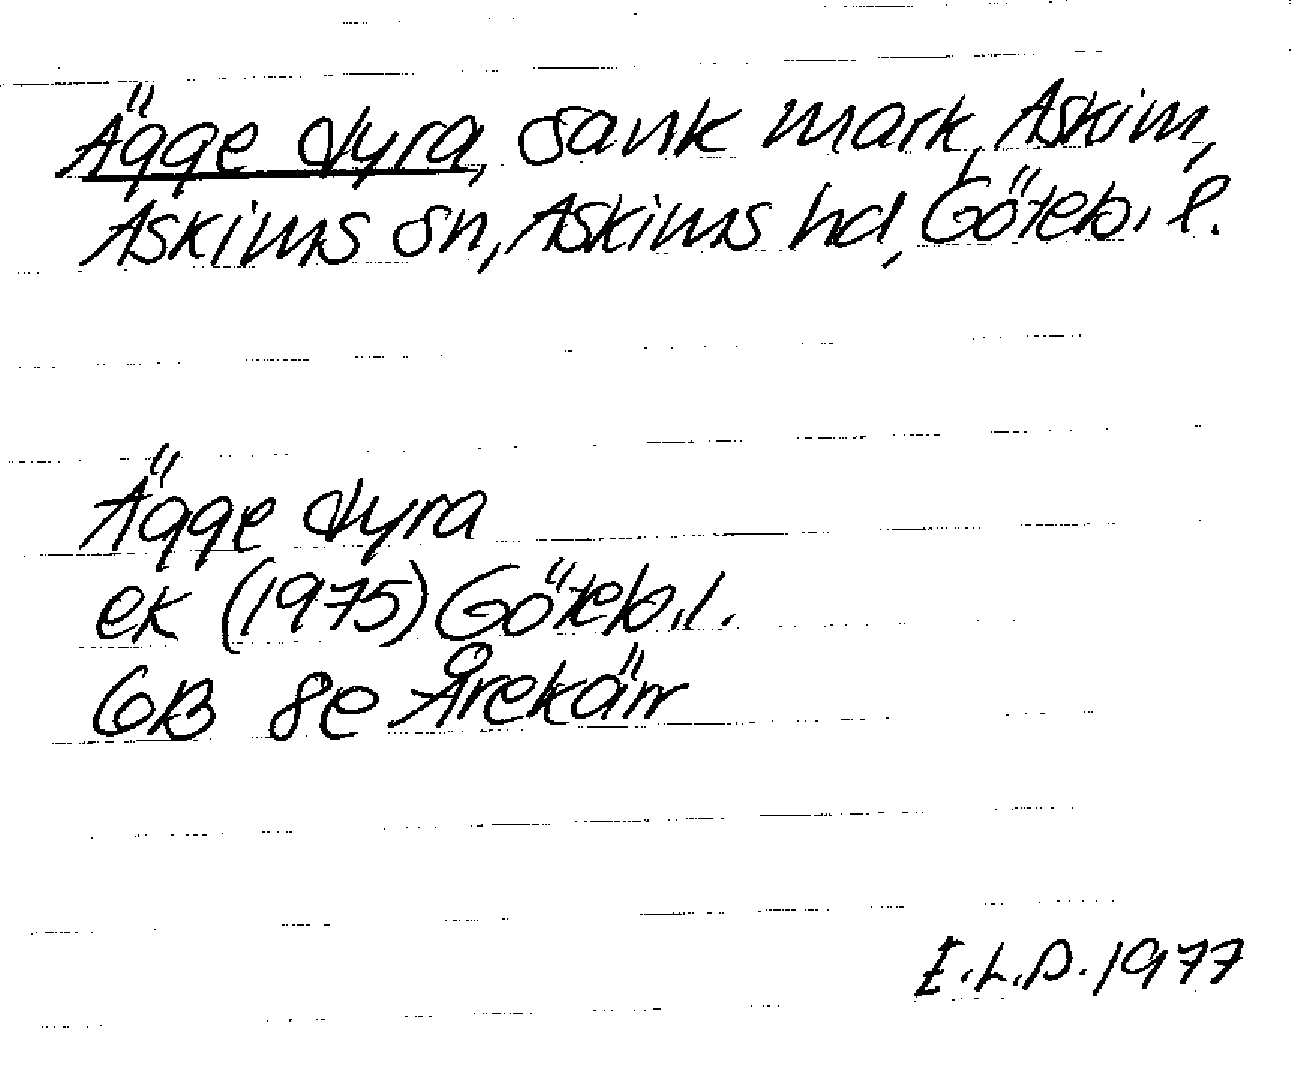 Ägge dyra, sank mark, Askim,
Askims sn, Askims hd, Göteb. l.
Ägge dyra
ek (1975) Göteb. l.
6B 8e Årekärr
E.L.D. 1977